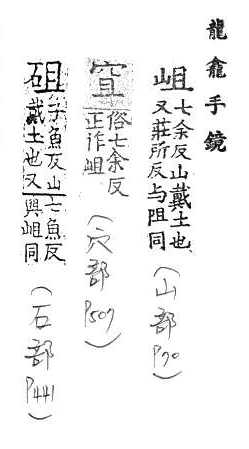 龍龕手鏡
岨七余反山戴土也
又莊所反与阻同
(山部P70)
俗七余反
正作岨
(穴部P509)
砠子魚反山七魚反
戴土也又與岨同
(石部P441)